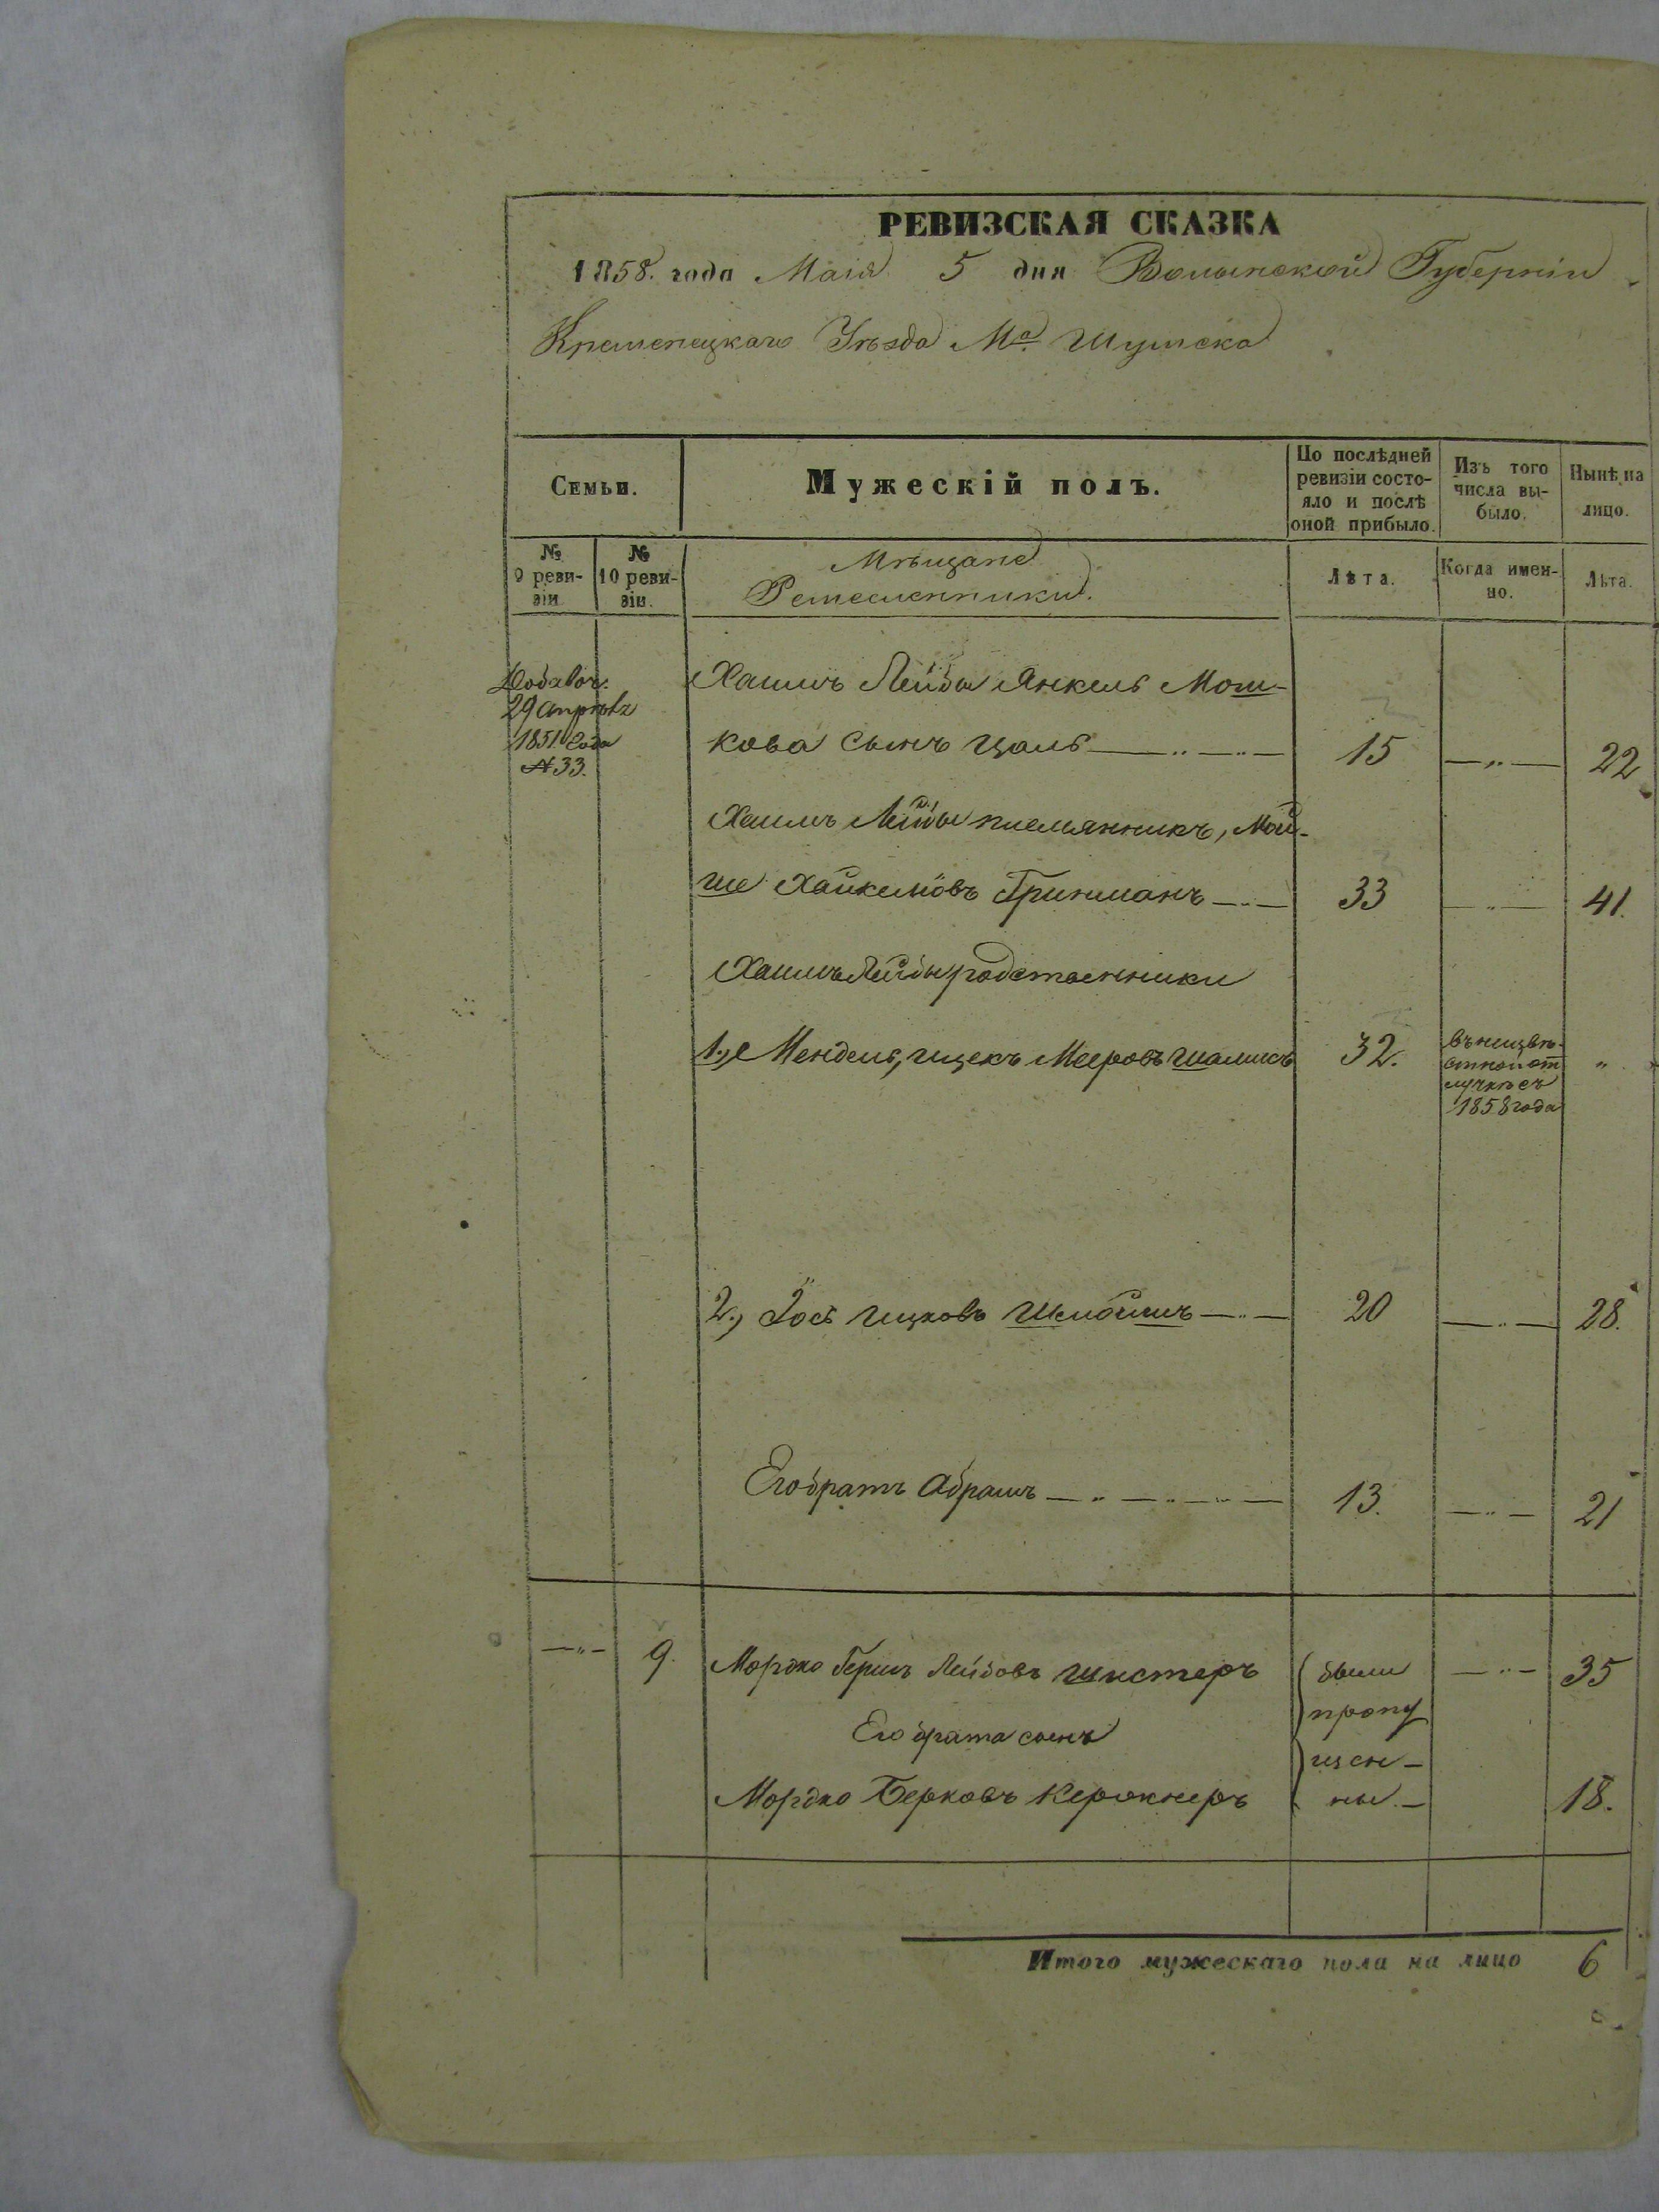 РЕВИЗСКАЯ СКАЗКА
1858. года Маія 5 дня Волынской Губерніи
Кременецкаго Уѣзда Ма. Шумска
Семьи.
Мужескій полъ.
По послѣдней ревизіи состояло и послѣ оной прибыло.
Изъ того числа выбыло.
Нынѣ на лицо.
№ 9 ревизіи
№ 10 ревизіи.
Мѣщане
Ремесленники.
Лѣта.
Когда именно.
Лѣта.
Добавоч.
29 апрѣля
1851 года
№ 33.
Хаимъ Лейбы Янкель Мош-
кова сынъ Цаль —„—„— 15 —„— 22
Хаимъ Лейбы племянникъ, Мой-
ше Хайкелювъ Гринманъ —„— 33 —„— 41.
Хаимъ Лейбы родственники
1., Мендель, ицекъ Меировъ 32. „
въ неизвѣ-
стной от
лучкѣ съ
1858 года
2., Іось ицковъ Шмойшъ —„— 20 —„— 28.
Его братъ Абрамъ —„—„—„— 13. —„— 21
—„— 9. Мордко Гершъ Лейбовъ Шистеръ были —„— 35
пропу
Его брата сынъ
щен-
Мордко Берковъ Кержнеръ ны.— 18.
Итого мужескаго пола на лицо 6